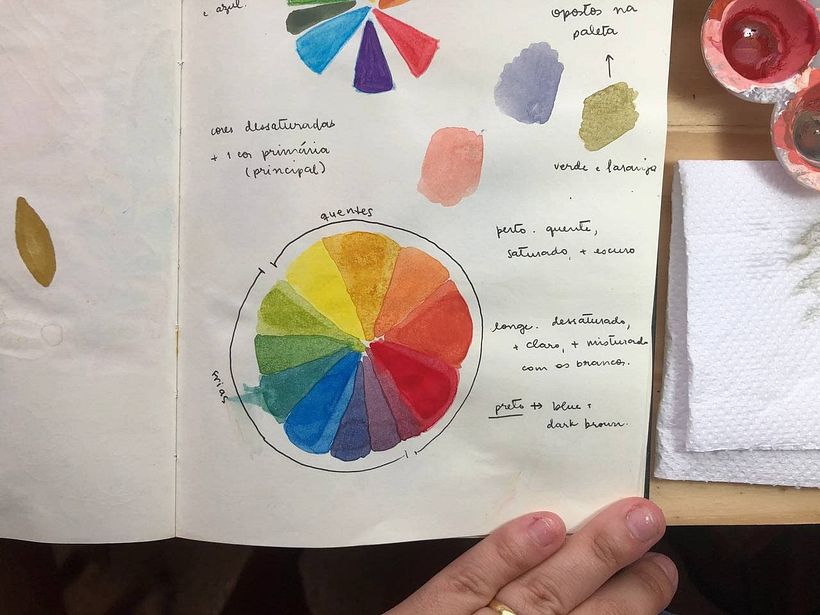 e azul.
opostos na
paleta
cores dessaturadas
+ 1 cor primária
(principal)
verde e laranja
quentes
perto. quente,
saturado, + escuro
longe. dessaturado,
+ claro, + misturado
com os brancos.
frias
preto → blue +
dark brown.